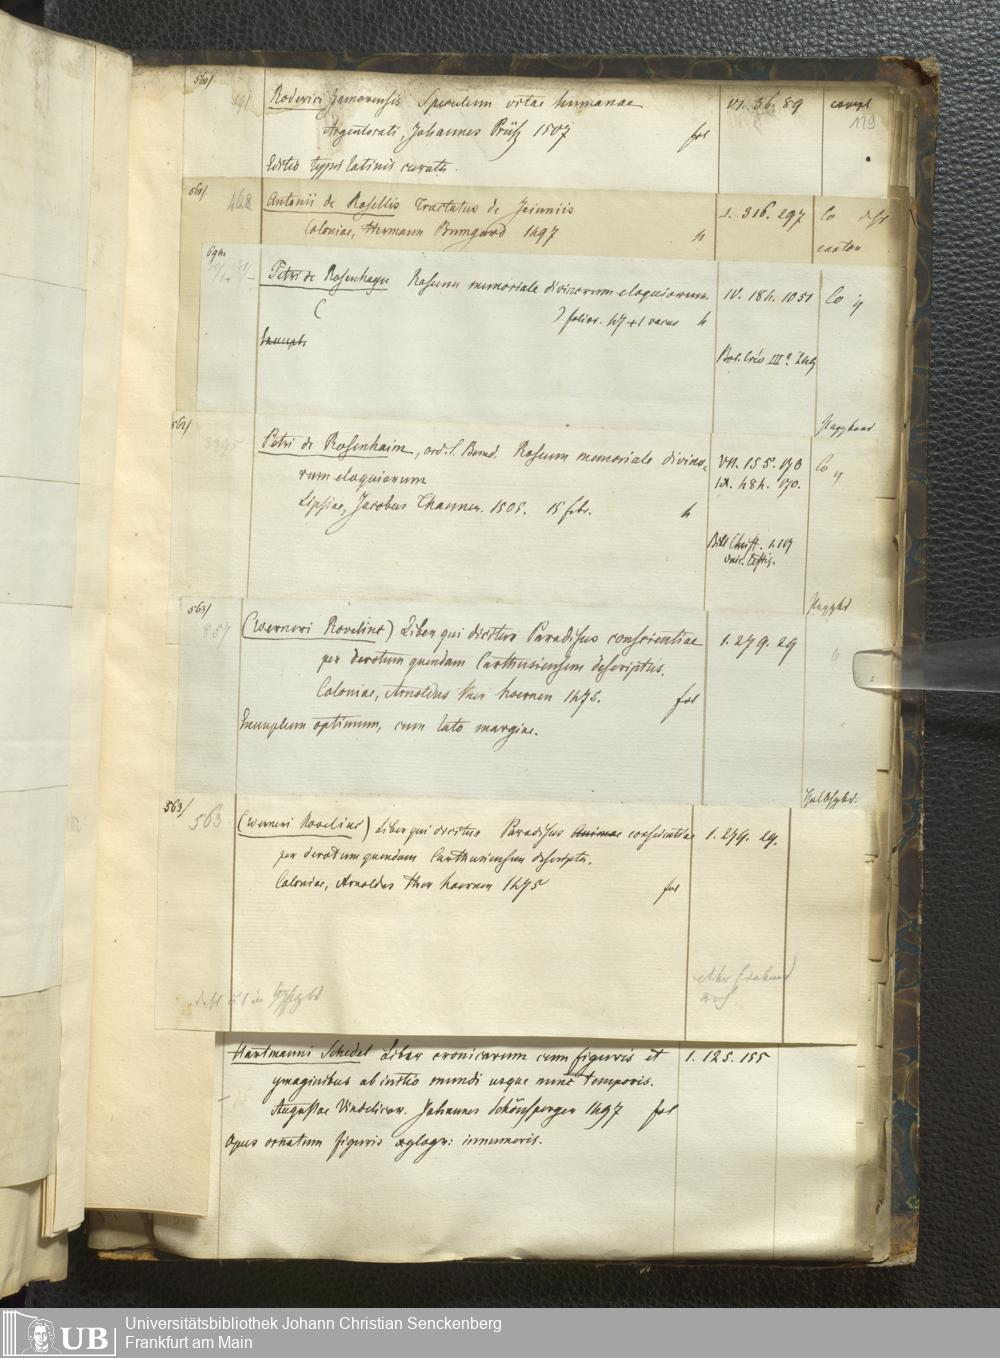 560/
Roderici Zamorensis Speculum vitae humanae VI. 36. 89
119
Argentorati, Johannes Prüß 1507 fol
Editio typis latinis curata.
561/
468 Antonii de Rosellis Tractatus de Jeiuniis 1. 316. 297 Co
Coloniae, Hermann Bumgard 1497 4
Petri de Rosenhayn Roseum memoriale divinorum eloquiorum. IV. 184. 1051 Co
( ) folior. 47 + 1 vacuo 4
562/
Petri de Rosenhaim, ord. S. Bened. Roseum memoriale divino- VII. 155. 170 Co
rum eloquiorum IX. 484. 170.
Lipsiae, Jacobus Thanner. 1505. 15 febr. 4
563/
857 (Werneri Rovelinc) Liber qui dicitur Paradisus conscientiae 1. 279. 29
per devotum quendam Carthusiensem descriptus.
Coloniae, Arnoldus ther hoernen 1475. fol
Exemplum optimum, cum lato margine.
563/
563 (Werneri Rovelinc) Liber qui dicitur Paradisus Animae conscientiae 1. 279. 29.
per devotum quendam Carthusiensem descripts.
Coloniae, Arnoldus ther hoernen 1475 fol
Hartmanni Schedel Liber cronicarum cum figuris et 1. 125. 155
ymaginibus ab initio mundi usque nunc temporis.
Augustae Vindelicor. Johannes Schönsperger 1497 fol
Opus ornatum figuris xylogr: innumeris.
UB
Universitätsbibliothek Johann Christian Senckenberg
Frankfurt am Main